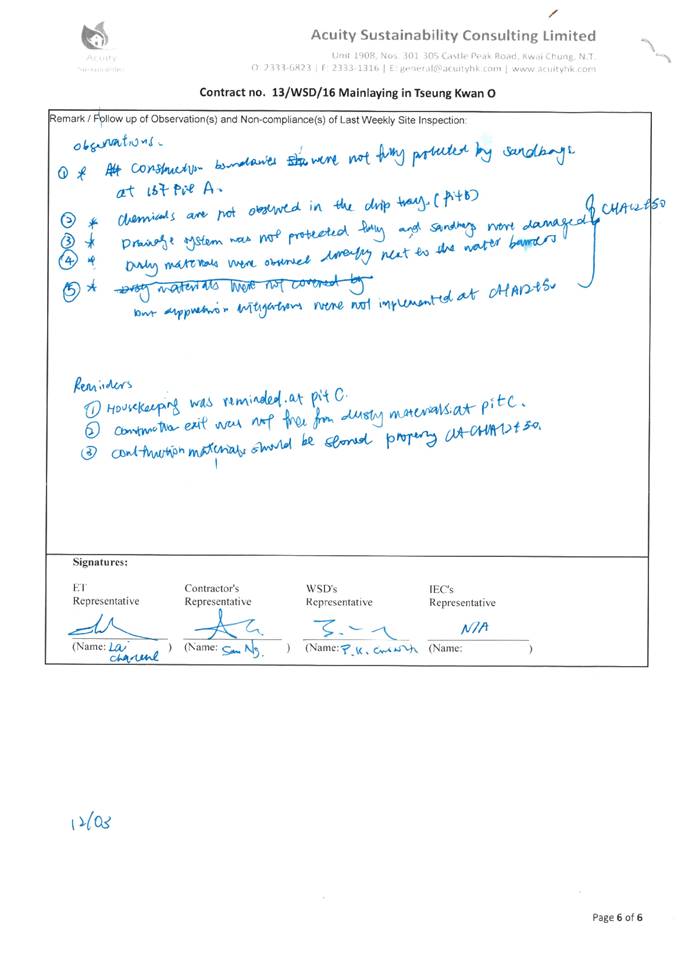 Acuity Sustainability Consulting Limited
Acuity
Unit 1908, Nos. 301-305 Castle Peak Road, Kwai Chung, N.T.
O: 2333-6823 | F: 2333-1316 | E: general@acuityhk.com | www.acuityhk.com
Contract no. 13/WSD/16 Mainlaying in Tseung Kwan O
Remark / Follow up of Observation(s) and Non-compliance(s) of Last Weekly Site Inspection:
Observations.
① * Construction boundaries were not fully protected by sandbags
at 137 Pit A.
② * Chemicals are not observed in the drip tray. (Pit B)
③ * Drainage system was not protected fully and sandbags were damaged CHA12+50
④ * Dusty materials were observed directly next to the water barriers
⑤ * materials were not covered by
mitigations were not implemented at CHA12+50
Reminders
① Housekeeping was reminded at pit C.
② Construction exit was not free from dusty materials at pit C.
③ construction materials should be stored properly at CHA12+50.
Signatures:
ET Contractor's WSD's IEC's
Representative Representative Representative Representative
N/A
(Name: ) (Name: Sam Ng. ) (Name: P.K. ) (Name: )
12/03
Page 6 of 6